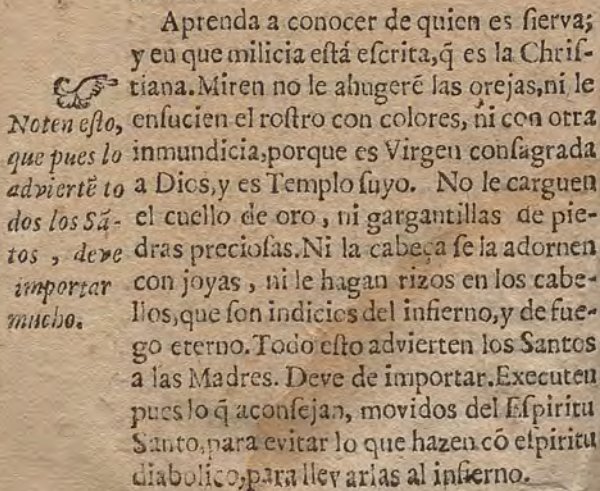 Aprenda a conocer de quien es ſierva;
y en que milicia eſtá eſcrita,q̃ es la Chriſ-
tiana.Miren no le ahugerẽ las orejas,ni le
enſucien el roſtro con colores, ni con otra
inmundicia,porque es Virgen conſagrada
a Dios,y es Templo ſuyo. No le carguen
el cuello de oro, ni gargantillas de pie-
dras precioſas.Ni la cabeça ſe la adornen
con joyas, ni le hagan rizos en los cabe-
llos,que ſon indicios del infierno,y de fue-
go eterno.Todo eſto advierten los Santos
a las Madres. Deve de importar.Executen
pues lo q̃ aconſejan, movidos del Eſpiritu
Santo,para evitar lo que hazen cõ eſpiritu
diabolico,para llevarlas al infierno.
Noten eſto,
que pues lo
adviertẽ to
dos los Sã-
tos, deve
importar
mucho.